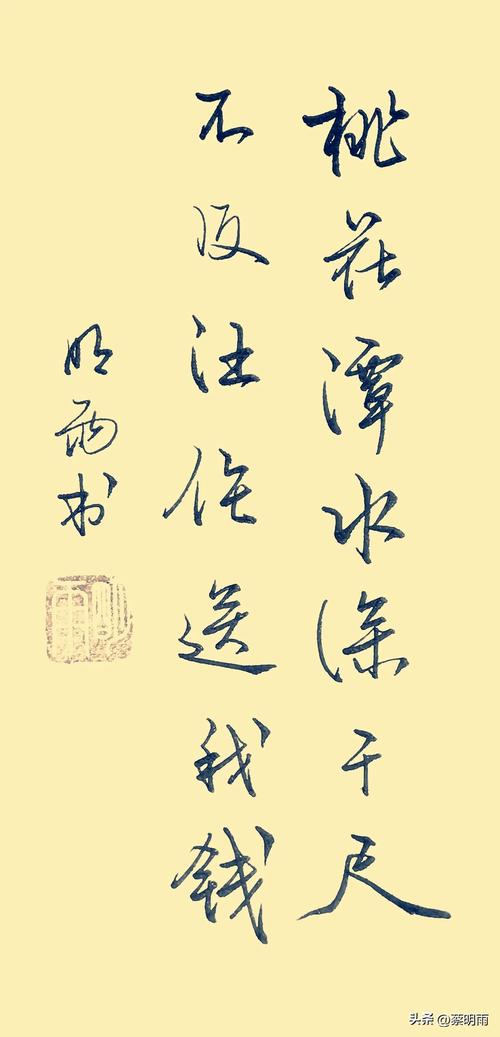 桃花潭水深千尺
不及汪伦送我钱
明雨书
头条 @蔡明雨